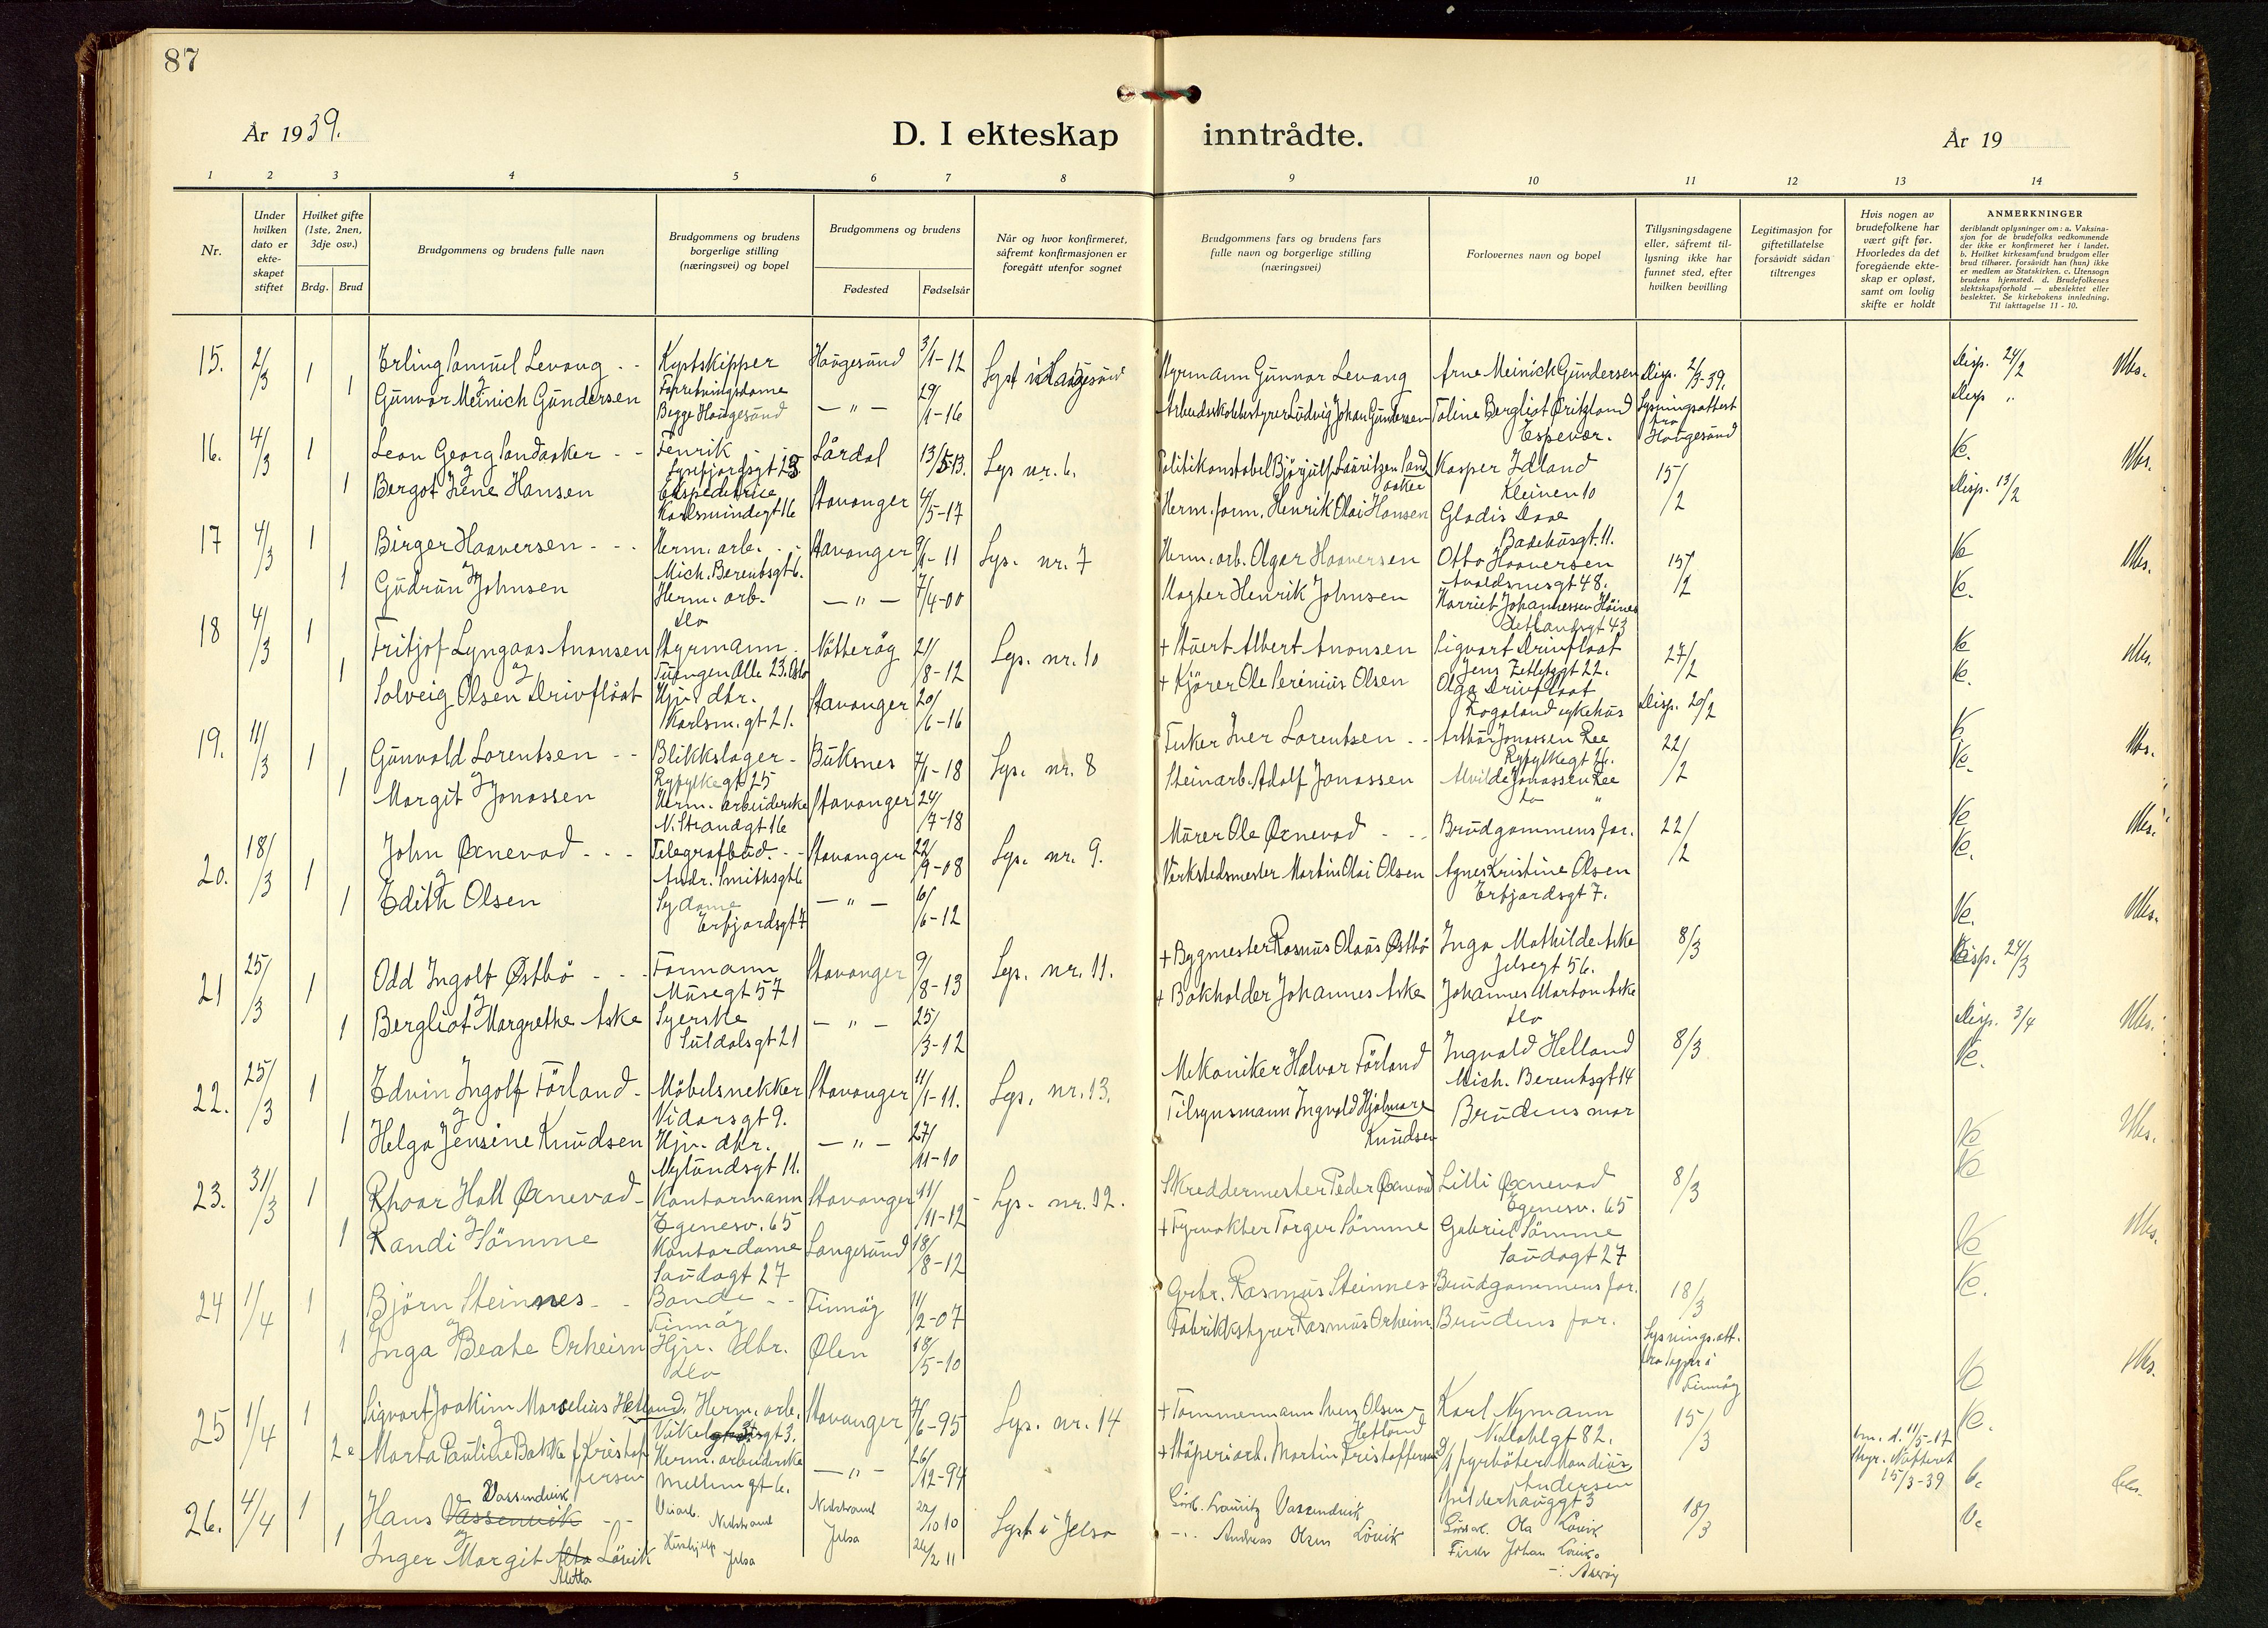 87
År 1939.
D. I ekteskap inntrådte.
År 19
1 2 3 4 5 6 7 8 9 10 11 12 13 14
Nr.
Under hvilken dato er ekteskapet stiftet
Hvilket gifte (1ste, 2nen, 3dje osv.)
Brdg. Brud
Brudgommens og brudens fulle navn
Brudgommens og brudens borgerlige stilling (næringsvei) og bopel
Brudgommens og brudens
Fødested Fødselsår
Når og hvor konfirmeret, såfremt konfirmasjonen er foregått utenfor sognet
Brudgommens fars og brudens fars fulle navn og borgerlige stilling (næringsvei)
Forlovernes navn og bopel
Tillysningsdagene eller, såfremt tillysning ikke har funnet sted, efter hvilken bevilling
Legitimasjon for giftetillatelse forsåvidt sådan tiltrenges
Hvis nogen av brudefolkene har vært gift før. Hvorledes da det foregående ekteskap er opløst, samt om lovlig skifte er holdt
ANMERKNINGER
deriblandt oplysninger om: a. Vaksinasjon for de brudefolks vedkommende der ikke er konfirmeret her i landet. b. Hvilket kirkesamfund brudgom eller brud tilhører, forsåvidt han (hun) ikke er medlem av Statskirken. c. Utensogn brudens hjemsted. d. Brudefolkenes slektskapsforhold — ubeslektet eller beslektet. Se kirkebokens innledning. Til iakttagelse 11 - 10.
15. 2/3 1 Erling Samuel Levang Kystskipper Haugesund 3/1-12 Lyst i Haugesund Styrmann Gunnar Levang Arne Meinich Gundersen Disp. 2/3-39. Disp. 24/2
og
1 Gunvor Meinich Gundersen Forretningsdame Begge Haugesund — " — 29/1-16 Ludvig Johan Gundersen Espevær. Lysningsattest fra Haugesund Disp "
16. 4/3 1 Leon Georg Sandaaker Fenrik Lysefjordsgt 23 Lårdal 13/5-13. Lys nr. 6. Politikonstabel Bjørgulf Lauritzen Sandaaker Kasper Idland Kleiven 10 15/2
og
1 Bergot Irene Hansen Ekspeditrice Karlsmindegt 16 Stavanger 4/5-17 Herm. form. Henrik Olai Hansen Gladis Daae Badehusgt. 11. Disp. 13/2
17 4/3 1 Birger Haaversen Herm. arb. Mich. Berentsgt 6. Stavanger 9/1-11 Lys. nr. 7 Herm. arb. Olgar Haaversen Otto Haaversen Avaldsnesgt 48. 15/2
og
1 Gudrun Johnsen Herm. arb. do — " — 7/4-00 Magter Henrik Johnsen Harriet Johannessen Høines Hetlandsgt 43
18 4/3 1 Fritjof Lyngaas Anonsen Styrmann Tuengen Alle 23. Oslo Nøtterøy 21/8-12 Lys. nr. 10 + Stuert Albert Anonsen Sigvart Drivflaat Jens Zetlitzgt 22. 27/2
og
1 Solveig Olsen Drivflåat Hjv. dtr. Karlsm. gt 21. Stavanger 20/6-16 + Kjører Ole Serinius Olsen Olga Drivflaat Rogaland sykehus Disp. 20/2
19. 11/3 1 Gunvald Lorentsen Blikkslager Ryfylkegt 25 Buksnes 7/1-18 Lys. nr. 8 Fisker Iver Lorentsen Arthur Jonassen Ree Ryfylkegt 26. 22/2
og
1 Margit Jonassen Herm. arbeiderske N. Strandgt 16 Stavanger 24/7-18 Steinarb. Adolf Jonassen Alvilde Jonassen Ree do "
20. 18/3 1 John Øxnevad Telegrafbud. Andr. Smithsgt 6 Stavanger 22/9-08 Lys. nr. 9. Murer Ole Øxnevad Brudgommens far. 22/2
og
1 Edith Olsen Sydame Erfjordsgt 7 — " — 6/6-12 Verkstedsmester Martin Olai Olsen Agnes Kristine Olsen Erfjordsgt 7.
21 25/3 1 Odd Ingolt Østbø Formann Musegt 57 Stavanger 9/8-13 Lys. nr. 11. + Bygmester Rasmus Olaus Østbø Inga Mathilde Aske Jelsegt 56. 8/3
og
1 Bergliot Margrethe Aske Syerske Suldalsgt 21 — " — 25/3-12 + Bokholder Johannes Aske Johannes Morton Aske do Disp. 24/3
22. 25/3 1 Edvin Ingolf Førland Møbelsnekker Vidarsgt 9. Stavanger 11/1-11. Lys. nr. 13. Mekaniker Halvor Førland Ingvald Helland Mich. Berentsgt 14 8/3 Disp. 3/4
og
1 Helga Jensine Knudsen Hjv. dtr. Nylundsgt 11. — " — 27/11-10 Tilsynsmann Ingvald Hjalmar Knudsen Brudens mor
23. 31/3 1 Rhoar Hall Øxnevad Kontormann Egenesv. 65 Stavanger 11/11-12 Lys. nr. 12. Skreddermester Peder Øxnevad Lilli Øxnevad Egenesv. 65 8/3
og
1 Randi Sømme Kontordame Saudagt 27 Langesund 18/8-12 + Fyrvokter Torger Sømme Gabriel Sømme Saudagt 27
24 1/4 1 Bjørn Steinnes Bonde Finnøy Finnøy 11/2-07 Grbr. Rasmus Steinnes Brudgommens far. 18/3
og
1 Inga Beate Orheim Hjv. dtr. do Ølen 18/5-10 Fabrikkstyrer Rasmus Orheim. Brudens far. Lysnings. att. fra Finnøy
25 1/4 1 Sigvart Joakim Marselius Hetland, Herm. arb. Stavanger 7/6-95 Lys. nr. 14 + Tømmermann Sven Olsen Hetland Karl Nymann N. Dahlgt 82. 15/3
og
2e Marta Pauline Bakke f. Kristoffersen Herm. arbeiderske Mellumgt 6. — " — 26/12-94 + Støperiarb. Martin Kristoffersen fyrbøter Mandius Andersen 3 15/3-39
26. 4/4 1 Hans Vassenvik Vassendvik Nedstrand Nedstrand 22/10 10 Lyst i Jelsa Lauritz Vassendvik Ola Løvik 18/3
og
1 Inger Margit Alta Løvik Alotta Hushjelp Jelsa Jelsa 26/2 11 Andreas Olsen Løvik Johan Løvik